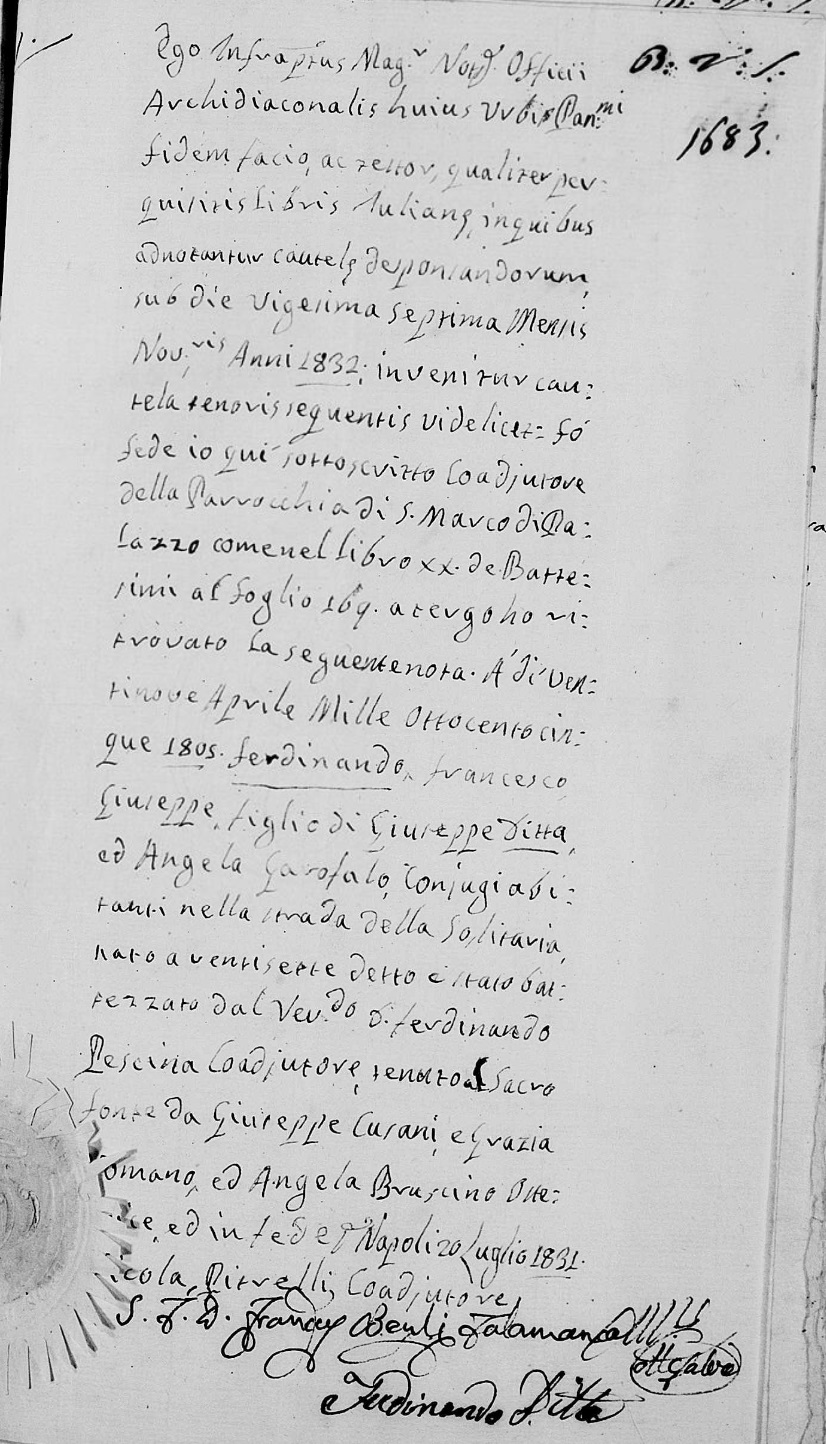 Ego Infraptus Mag.r Not.s Officii
B. V. S.
Archidiaconalis huius Urbis Pan:mi
1683.
fidem facio, ac testor, qualiter per=
quisitis libris Iulianę, in quibus
adnotantur cautelę desponsandorum,
sub die vigesima septima Mensis
Nov:vis Anni 1832: invenitur cau:
tela tenoris sequentis videlicet= Fó
fede io quí sottoscritto Coadjutore
della Parrocchia di S. Marco di Pa:
lazzo come nel libro xx. de Batte:
simi al foglio 169. a tergo ho ri:
trovato la seguente nota. A' dí ven:
tinove Aprile Mille Ottocento cin:
que 1805. Ferdinando, Francesco,
Giuseppe, figlio di Giuseppe Ditta,
ed Angela Garofalo, Conjugi abi:
tanti nella strada della Solitaria,
nato a ventisette detto è stato bat:
tezzato dal Rev.do D. Ferdinando
Pescina Coadjutore, tenuto al Sacro
fonte da Giuseppe Cusani, e Grazia
omano, ed Angela Bruscino Otte:
ice, ed in fede Napoli 20 Luglio 1831.
icola Pitrelli Coadjutore
S. T. D. Salamanca
Ferdinando Ditta